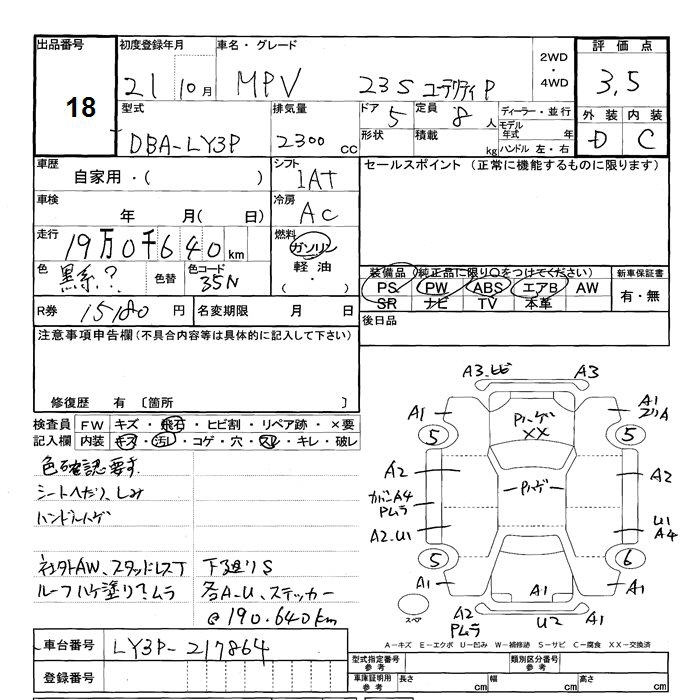 出品番号
18
初度登録年月
21 10月
車名・グレード
MPV 23S ユーテリティP
2WD
・
4WD
評価点
3.5
外装 内装
D C
型式
DBA-LY3P
排気量
2300 CC
ドア
5
定員
8人
形状
積載
kg
ディーラー・並行
モデル年式 年
ハンドル 左・右
車歴
自家用・( )
シフト
IAT
車検
年 月( 日)
冷房
AC
走行
19万0千640km
燃料
ガソリン
軽油
・( )
色
黒系?
色替
色コード
35N
R券
15180円
名変期限 月 日
セールスポイント (正常に機能するものに限ります)
装備品 (純正品に限り○をつけてください)
PS PW ABS エアB AW
SR ナビ TV 本革
新車保証書
有・無
後日品
注意事項申告欄(不具合内容等は具体的に記入して下さい)
修復歴 有 〔箇所 〕
検査員記入欄
FW キズ・飛石・ヒビ割・リペア跡・×要
内装 キズ・汚レ・コゲ・穴・スレ・キレ・破レ
色確認要す
シートへたり、しみ
ハンドルハゲ
社外AW、スタッドレスT
ルーフハケ塗り?ムラ
下廻りS
各A-U、ステッカー
@190.640km
車台番号
LY3P-217864
登録番号
A3.ヒビ A3
A1 A1
5 5
Pハゲ
XX
A2 A2
Pハゲ
カバンA4
Pムラ
A2.U1
U1
A4
5 6
A1 A1
A1
スペア
A2
Pムラ
U2
A-キズ E-エクボ U-凹み W-補修跡 S-サビ C-腐食 XX-交換済
型式指定番号
参考
類別区分番号
参考
車庫証明用
参考
長さ cm 幅 cm 高さ cm